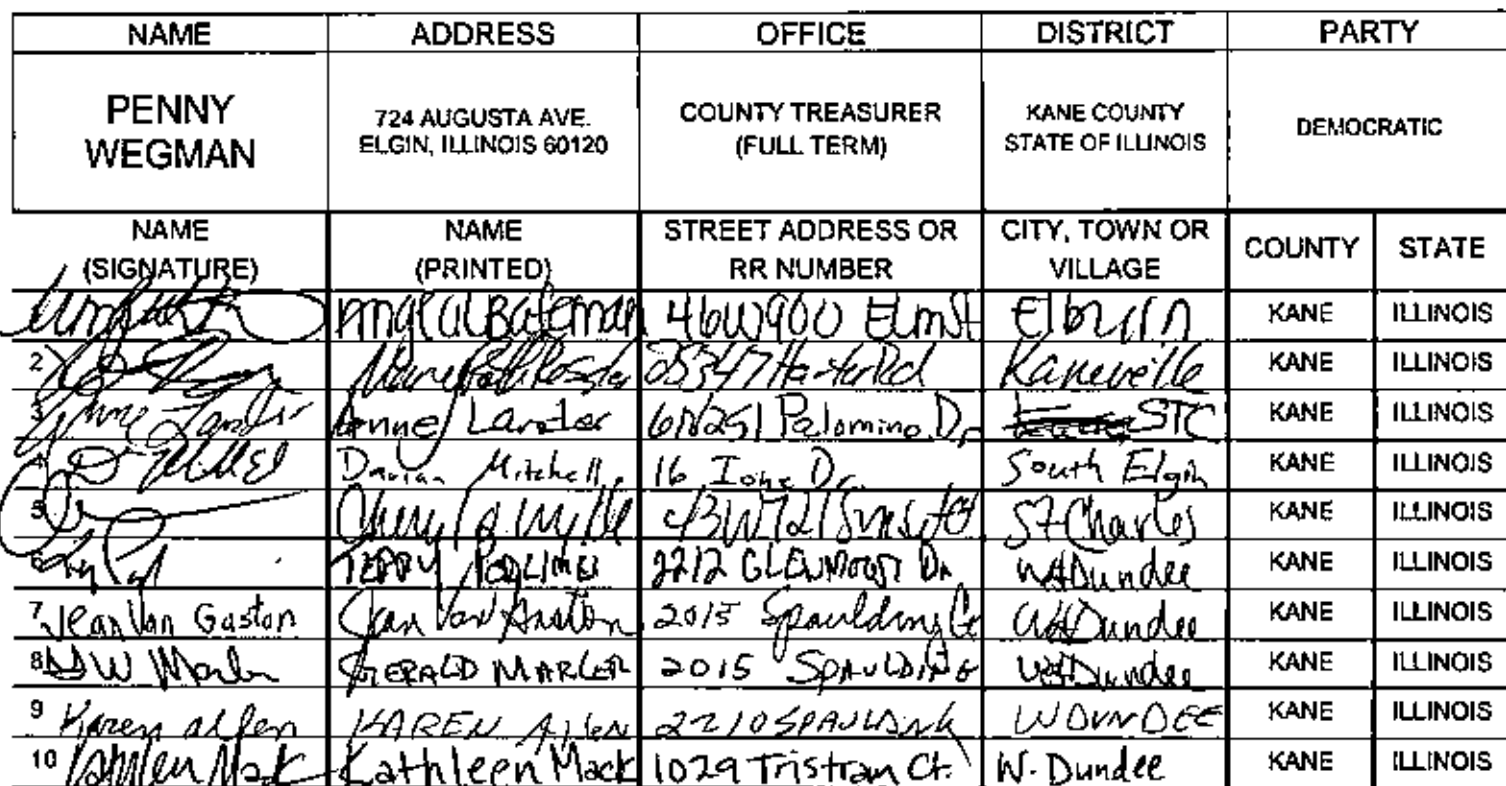 NAME ADDRESS OFFICE DISTRICT PARTY
PENNY WEGMAN 724 AUGUSTA AVE. ELGIN, ILLINOIS 60120 COUNTY TREASURER (FULL TERM) KANE COUNTY STATE OF ILLINOIS DEMOCRATIC
NAME (SIGNATURE) NAME (PRINTED) STREET ADDRESS OR RR NUMBER CITY, TOWN OR VILLAGE COUNTY STATE
Bateman 46W900 Elm St Elburn KANE ILLINOIS
2 Kaneville KANE ILLINOIS
3 Anne 6N251 Palomino Dr STC KANE ILLINOIS
4 Mitchell 16 Ione Dr. South Elgin KANE ILLINOIS
5 Cheryl St Charles KANE ILLINOIS
6 TERRY 2212 Dr W Dundee KANE ILLINOIS
7 Jean Van Gaston Jean Van Gaston 2015 Spaulding W Dundee KANE ILLINOIS
8 GERALD MARLER 2015 SPAULDING W Dundee KANE ILLINOIS
9 Karen Allen KAREN Allen 2210 SPAULDING W DUNDEE KANE ILLINOIS
10 Kathleen Mack Kathleen Mack 1029 Tristran Ct. W. Dundee KANE ILLINOIS